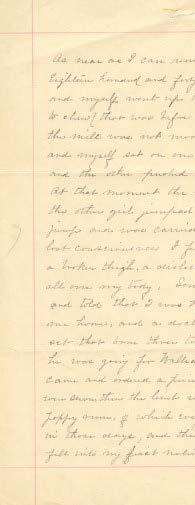 As near as I can rem
Eighteen hundred and forty
and myself went up
to that was before
the mill was not mov
and myself sat on one
and the other pushed
At that moment the
the other girl jumped
jump and was carried
lost consciousness I f
a broken thigh, a disloc
all over my body. Som
and told that I was
me home, and a doct
set that bone three t
he was going for Walth
came and ordered a fra
was seventeen the limb
poppy some, of which
in those days, and the
fell into my first nat